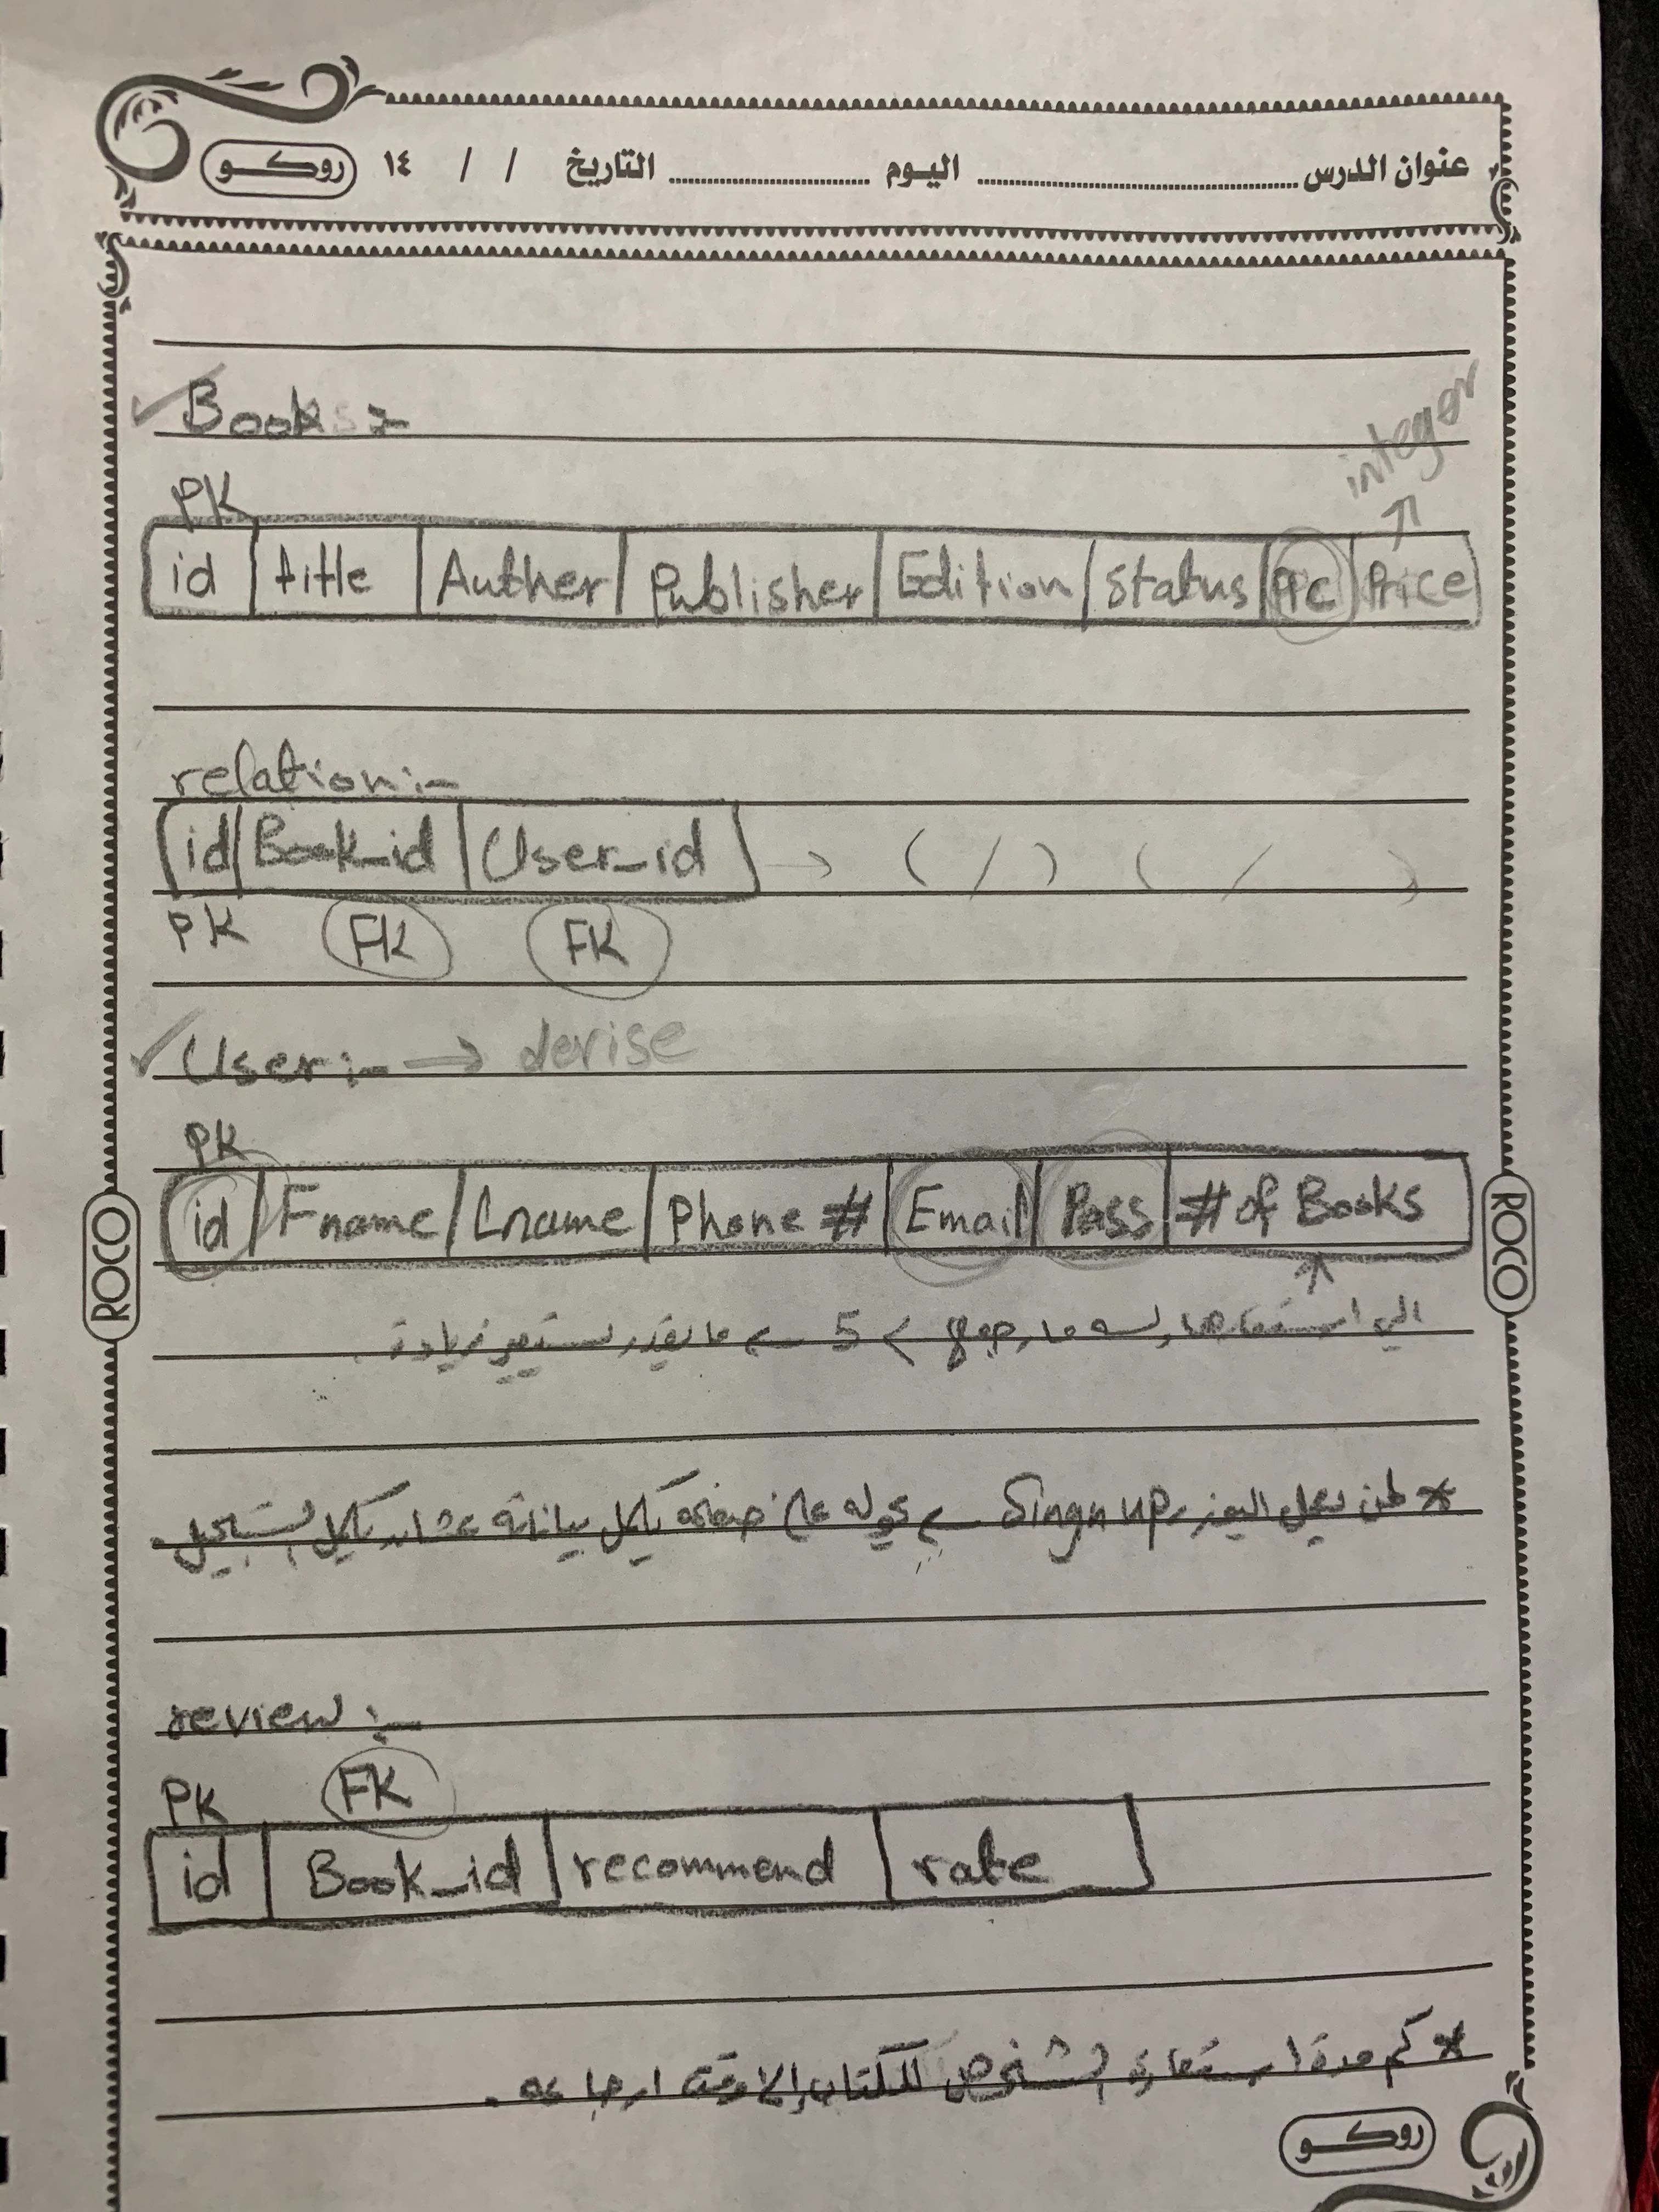 عنوان الدرس ........ اليوم ........ التاريخ / / ١٤ روكو
Books :-
integer
PK
id title Auther Publisher Edition Status Pic Price
relation:-
id Book_id User_id → ( / ) ( / )
PK FK FK
User:- → devise
PK
id Fname Lname Phone # Email Pass # of Books
الي استعارها ولسه ما رجعها > 5 ← ما يقدر يستعير زيادة.
* لمن يعمل اليوزر Singn up ← يحوله على صفحة يكمل بياناته عشان يكمل التسجيل.
ROCO
ROCO
review :-
PK FK
id Book_id recommend rate
* كم مدة استعارة الشخص للكتاب إلى وقت ارجاعه.
روكو